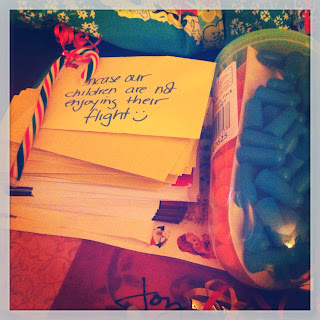 ncase our
children are not
enjoying their
flight